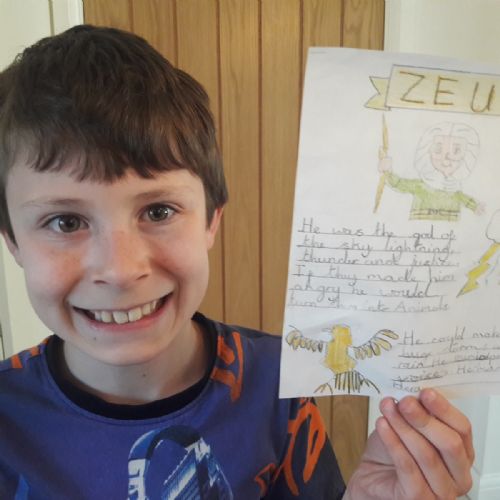 ZEU
He was the god of
the sky lightning
thunder and
If they made him
angry he would
turn them into Animals
He could make
rain He
Hera